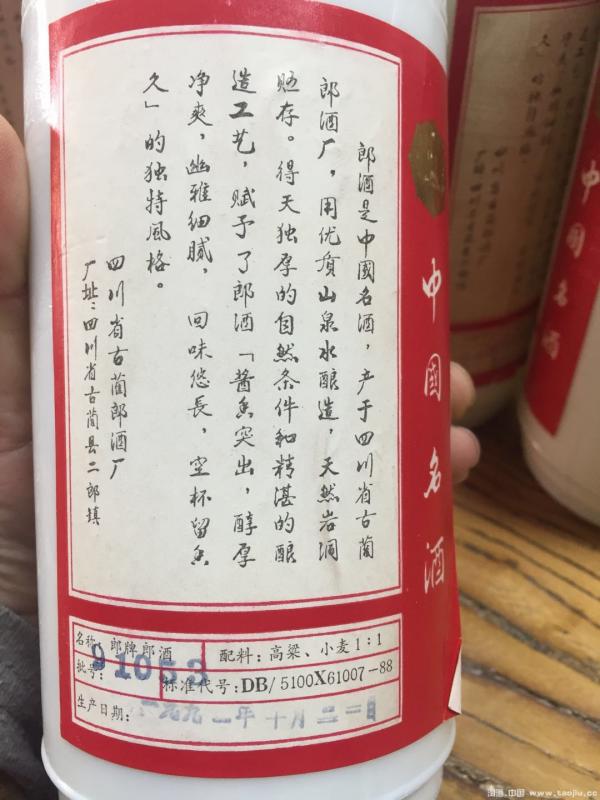 郎酒是中國名酒，产于四川省古蔺
郎酒厂，用优质山泉水酿造，天然岩洞
贮存。得天独厚的自然条件和精湛的酿
造工艺，赋予了郎酒「醬香突出，醇厚
净爽，幽雅细腻，回味悠長，空杯留香
久」的独特風格。
四川省古蔺郎酒厂
厂址：四川省古蔺县二郎镇
中國名酒
名称：郎牌郎酒
配料：高粱、小麦1:1
批号：91053
标准代号：DB/5100X61007-88
生产日期：一九九一年十月
中國名酒
淘酒.中国 www.taojiu.cc